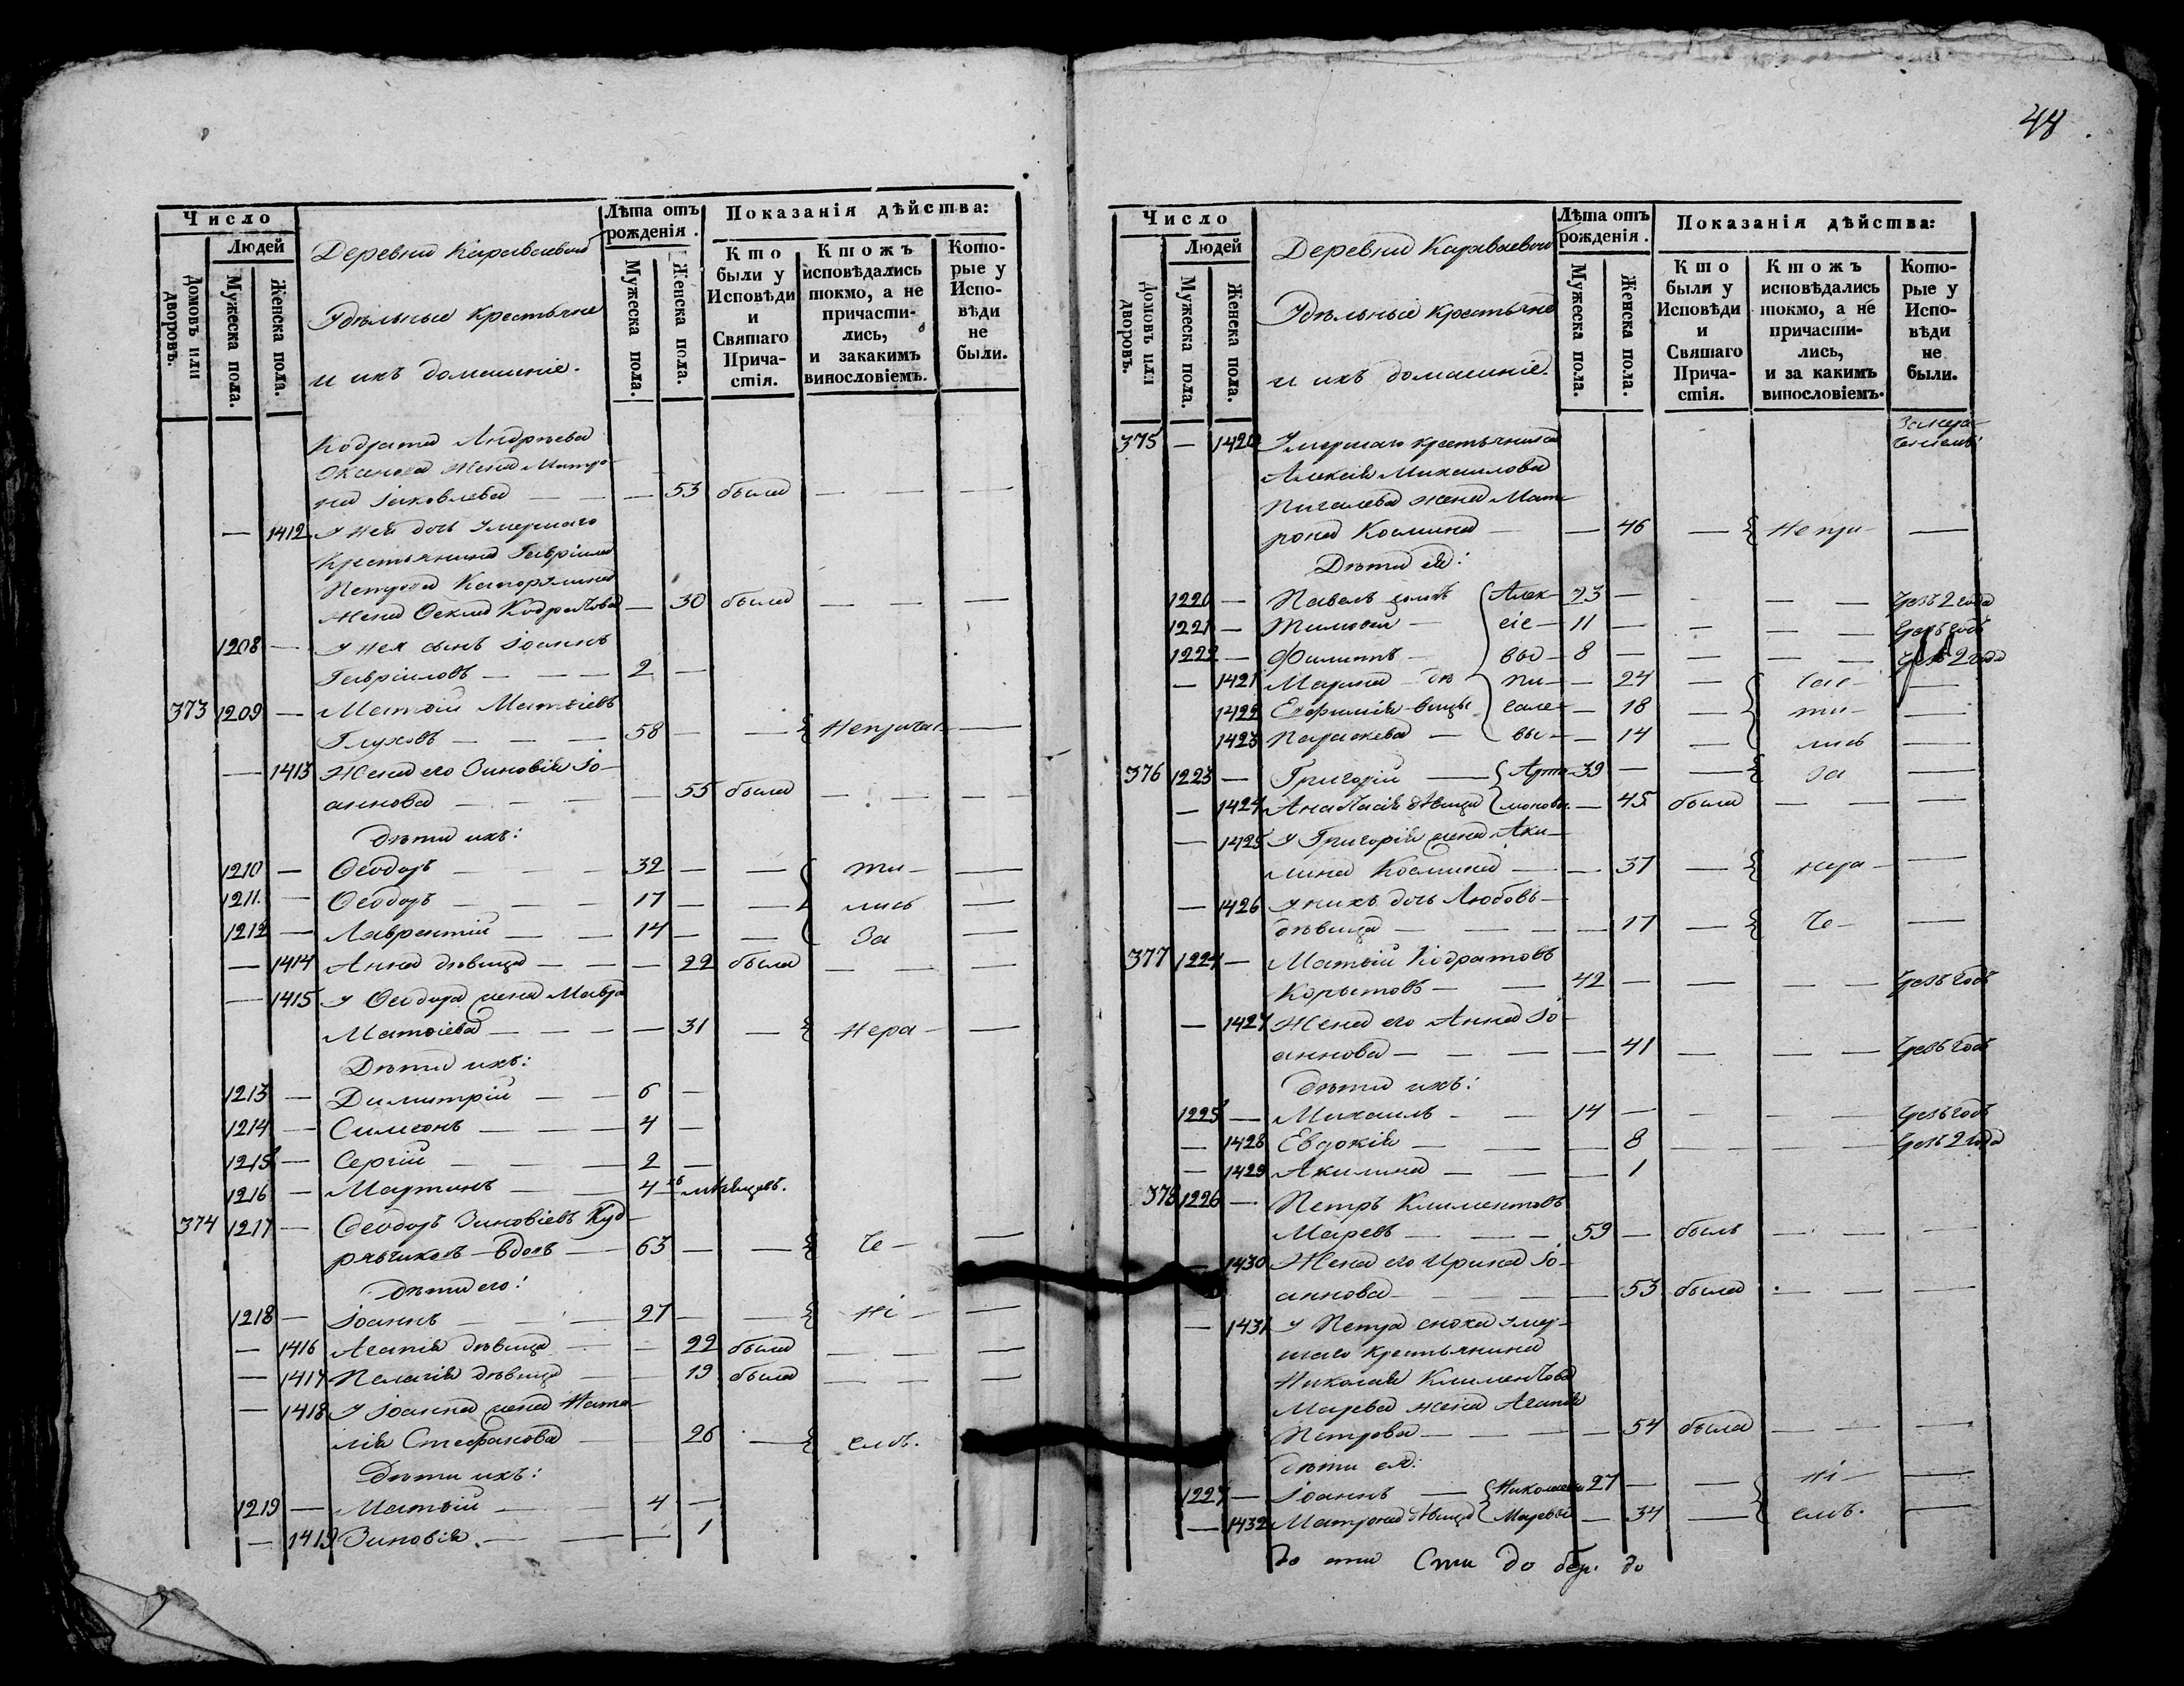 48
Число
Людей
Домовъ или дворовъ.
Мужеска пола.
Женска пола.
Деревни Караваевой
Удѣльные крестьяне
и ихъ домашніе.
Лѣта отъ рожденія.
Мужеска пола.
Женска пола.
Показанія дѣйства:
Кто были у Исповѣди и Святаго Причастія.
Ктожъ исповѣдались токмо, а не причастились, и закакимъ винословіемъ.
Которые у Исповѣди не были.
Кодрата Андреева
жена Матро-
на Іаковлева — — — 53 была — — —
— 1412 У ней дочь умершаго
крестьянина Гавріила
Петрова
жена Ѳекла Кодратова — 30 была — — —
1208 — У нея сынъ Іоаннъ
Гавріиловъ — — — 2 —
373 1209 — Матѳій Матѳіевъ
Глуховъ — — — 58 — — Непричас- —
— 1413 Жена его Зиновія Іо-
аннова — — — — 55 была — — —
дѣти ихъ:
1210 — Ѳеодоръ — — — 32 — — ти- —
1211 — Ѳеодоръ — — — 17 — — лись —
1212 — Лаврентій — — 14 — — За —
— 1414 Анна дѣвица — — — 22 была — — —
— 1415 У Ѳеодора жена Мавра
Матѳіева — — — — 31 — Нера- —
Дѣти ихъ:
1213 — Димитрій — — 6 —
1214 — Симеонъ — — — 4 —
1215 — Сергій — — — 2 —
1216 — Мартинъ — — 4 мѣсяцовъ.
374 1217 — Ѳеодоръ Зиновіевъ Куд-
рявчиковъ — вдовъ — 63 — — Че- —
дѣти его:
1218 — Іоаннъ — — — 27 — — ні- —
— 1416 Агапія дѣвица — — 22 была — — —
— 1417 Пелагія дѣвица — — 19 была — — —
— 1418 У Іоанна жена Ната-
лія Стефанова — — 26 — емъ.
Дѣти ихъ:
1219 — Матѳій — — 4 —
— 1419 Зиновія — — 1
Число
Людей
Домовъ или дворовъ.
Мужеска пола.
Женска пола.
Деревни Караваевой
Удѣльные крестьяне
и ихъ домашніе.
Лѣта отъ рожденія.
Мужеска пола.
Женска пола.
Показанія дѣйства:
Кто были у Исповѣди и Святаго Причастія.
Ктожъ исповѣдались токмо, а не причастились, и за какимъ винословіемъ.
Которые у Исповѣди не были.
За нера-
ченіемъ:
375 — 1420 Умершаго крестьянина
Алексія Михаилова
Пигалева жена Мат-
рона Космина — — 46 — Непри- —
Дѣти ея:
1220 — Павелъ Алек- 23 — — — Чрезъ 2 года
1221 — Тимоѳей — еіе- 11 — — — Чрезъ годъ
1222 — Филиппъ — вы- 8 — — — Чрезъ 2 года
— 1421 Марина дѣ- Пи- — 24 — час- —
1422 Евфимія вицы гале- — 18 — ти- —
1423 Параскева — вы- — 14 — лись —
376 1223 — Григорій — Арта- 39 — — за —
— 1424 Анастасія дѣвица моновы — 45 была — — —
— 1425 У Григорія жена Аки-
лина Космина — — 37 — нера- —
— 1426 У нихъ дочь Любовь —
дѣвица — — — — 17 — Че- —
377 1224 — Матѳій Кодратовъ
Корытовъ — — 42 — — — — Чрезъ годъ
— 1427 Жена его Анна Іо-
аннова — — — — 41 — — — Чрезъ годъ
дѣти ихъ:
1225 — Михаилъ — — 14 — — — — Чрезъ годъ
— 1428 Евдокія — — — 8 — — — Чрезъ 2 года
— 1429 Акилина — — — 1
378 1226 — Петръ Климентовъ
Маревъ — — — 59 — былъ — — —
— 1430 Жена его Ирина Іо-
аннова — — — 53 была — — —
— 1431 У Петра сноха умер-
шаго крестьянина
Николая Климентова
Марева жена Агапія
Петрова — — — — 54 была — — —
дѣти ея:
1227 — Іоаннъ — Николаевы 27 — — ні- —
— 1432 Матрона дѣвица Маревы — 34 — емъ. —